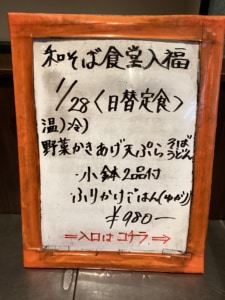 和そば食堂入福
1/28〈日替定食〉
温)冷)
野菜かきあげ天ぷら そば うどん
・小鉢2品付
ふりかけごはん(ゆかり)
¥980ー
⇒入口はコチラ⇒